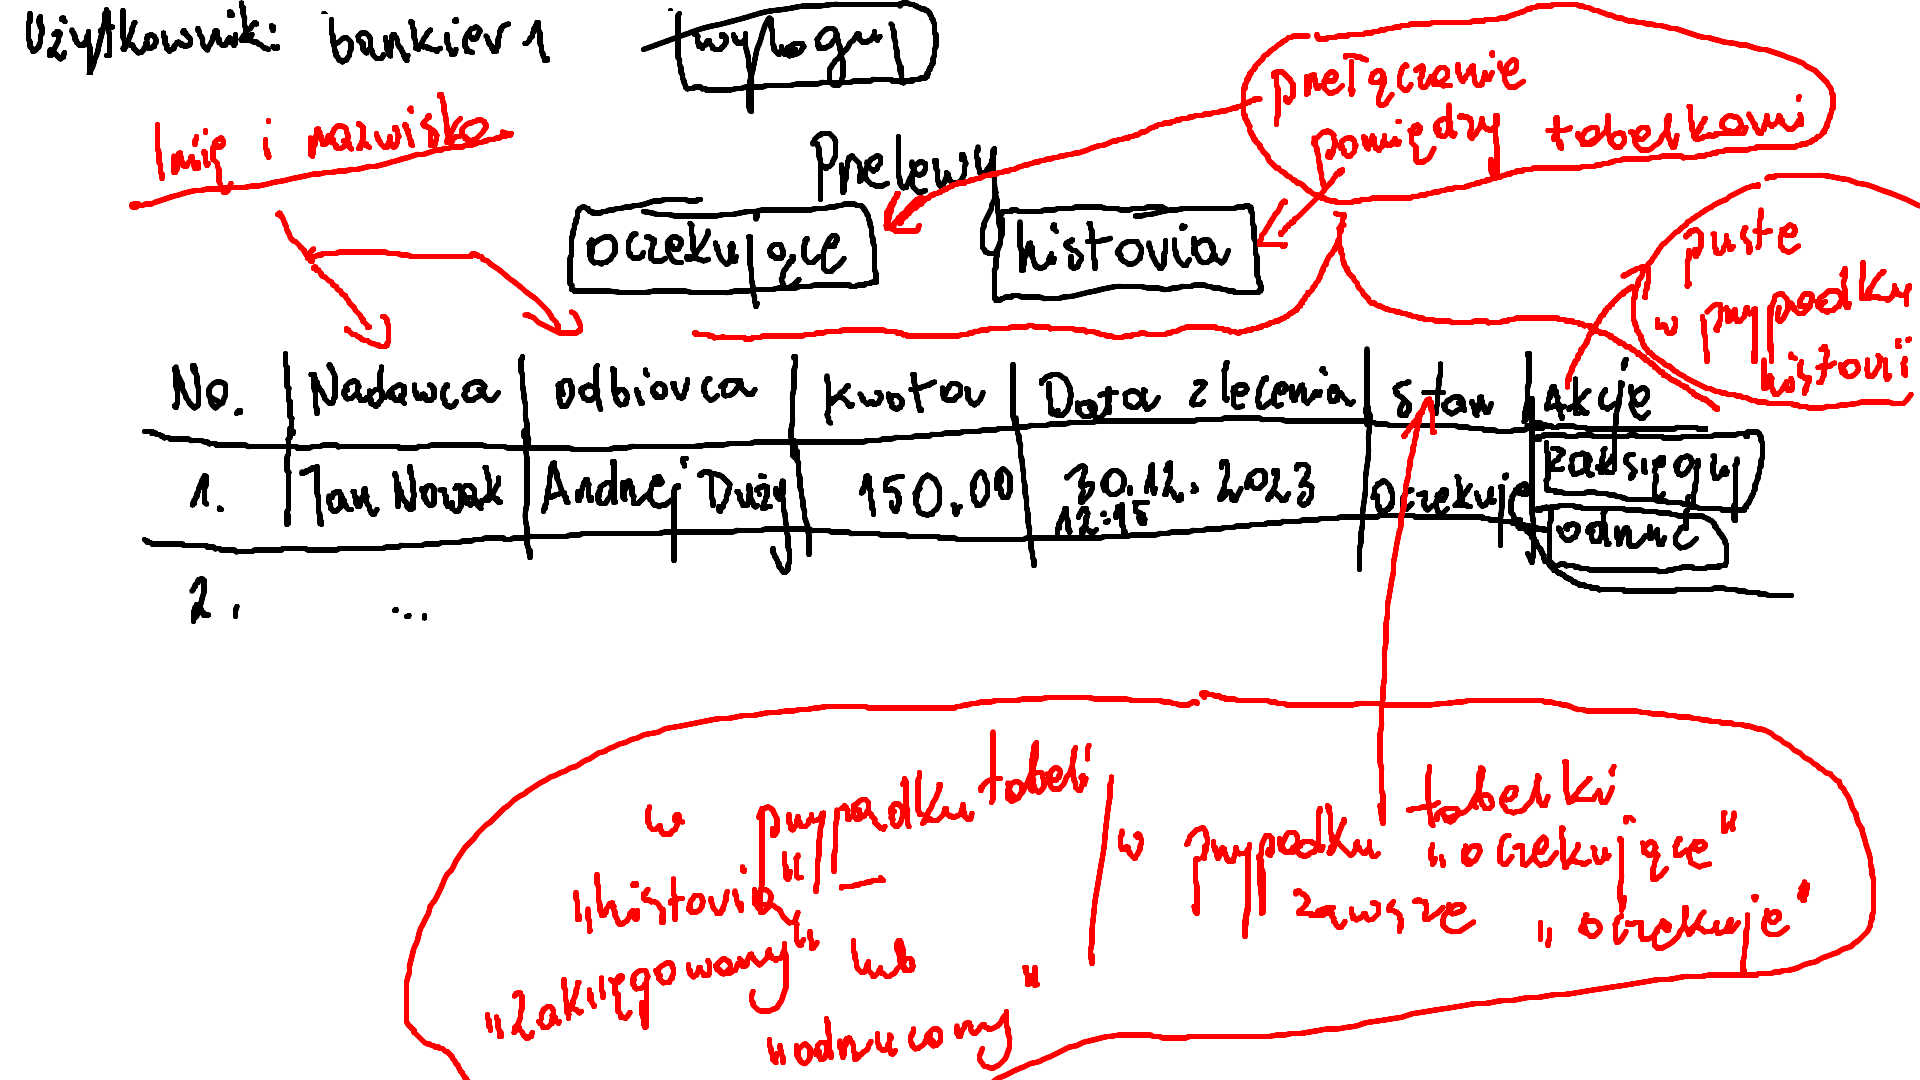 Użytkownik: bankier1 wyloguj
Imię i nazwisko
przełączenie
pomiędzy tabelkami
Przelewy
oczekujące historia
puste
w przypadku
historii
No. Nadawca odbiorca kwota Data zlecenia stan Akcje
1. Jan Nowak Andrzej Duży 150.00 30.12.2023 oczekuje zaksięguj
12:15
odrzuć
2. ...
w przypadku tabeli
„historia” –
„zaksięgowany” lub
„odrzucony”
w przypadku tabelki
„oczekujące”
zawsze „oczekuje”